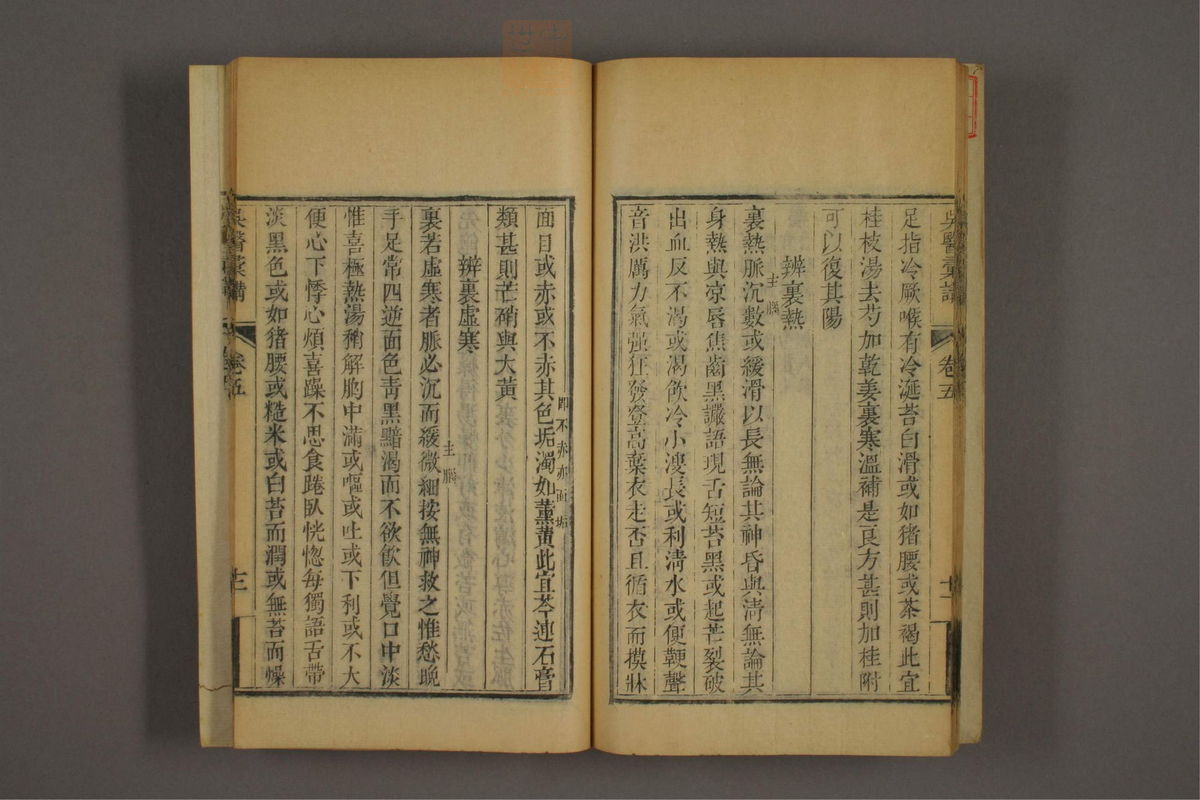 吳醫彙講
卷五
十二
足指冷厥喉有冷涎苔白滑或如猪腰或茶褐此宜
桂枝湯去芍加乾姜裏寒溫補是良方甚則加桂附
可以復其陽
辨裏熱
主腦
裏熱脈沉數或緩滑以長無論其神昏與淸無論其
身熱與凉唇焦齒黑讝語現舌短苔黑或起芒裂破
出血反不渴或渴飲冷小溲長或利淸水或便鞕聲
音洪厲力氣强狂發登高棄衣走否且循衣而摸牀
面目或赤或不赤其色垢濁如薰黃此宜芩連石膏
即不赤亦面垢
類甚則芒硝與大黃
辨裏虛寒
裏若虛寒者脈必沉而緩微細按無神救之惟愁晚
主腦
手足常四逆面色靑黑黯渴而不欲飮但覺口中淡
惟喜極熱湯稍解胸中滿或嘔或吐或下利或不大
便心下悸心煩喜躁不思食踡臥恍惚每獨語舌帶
淡黑色或如猪腰或糙米或白苔而潤或無苔而燥
吳醫彙講
卷五
十三